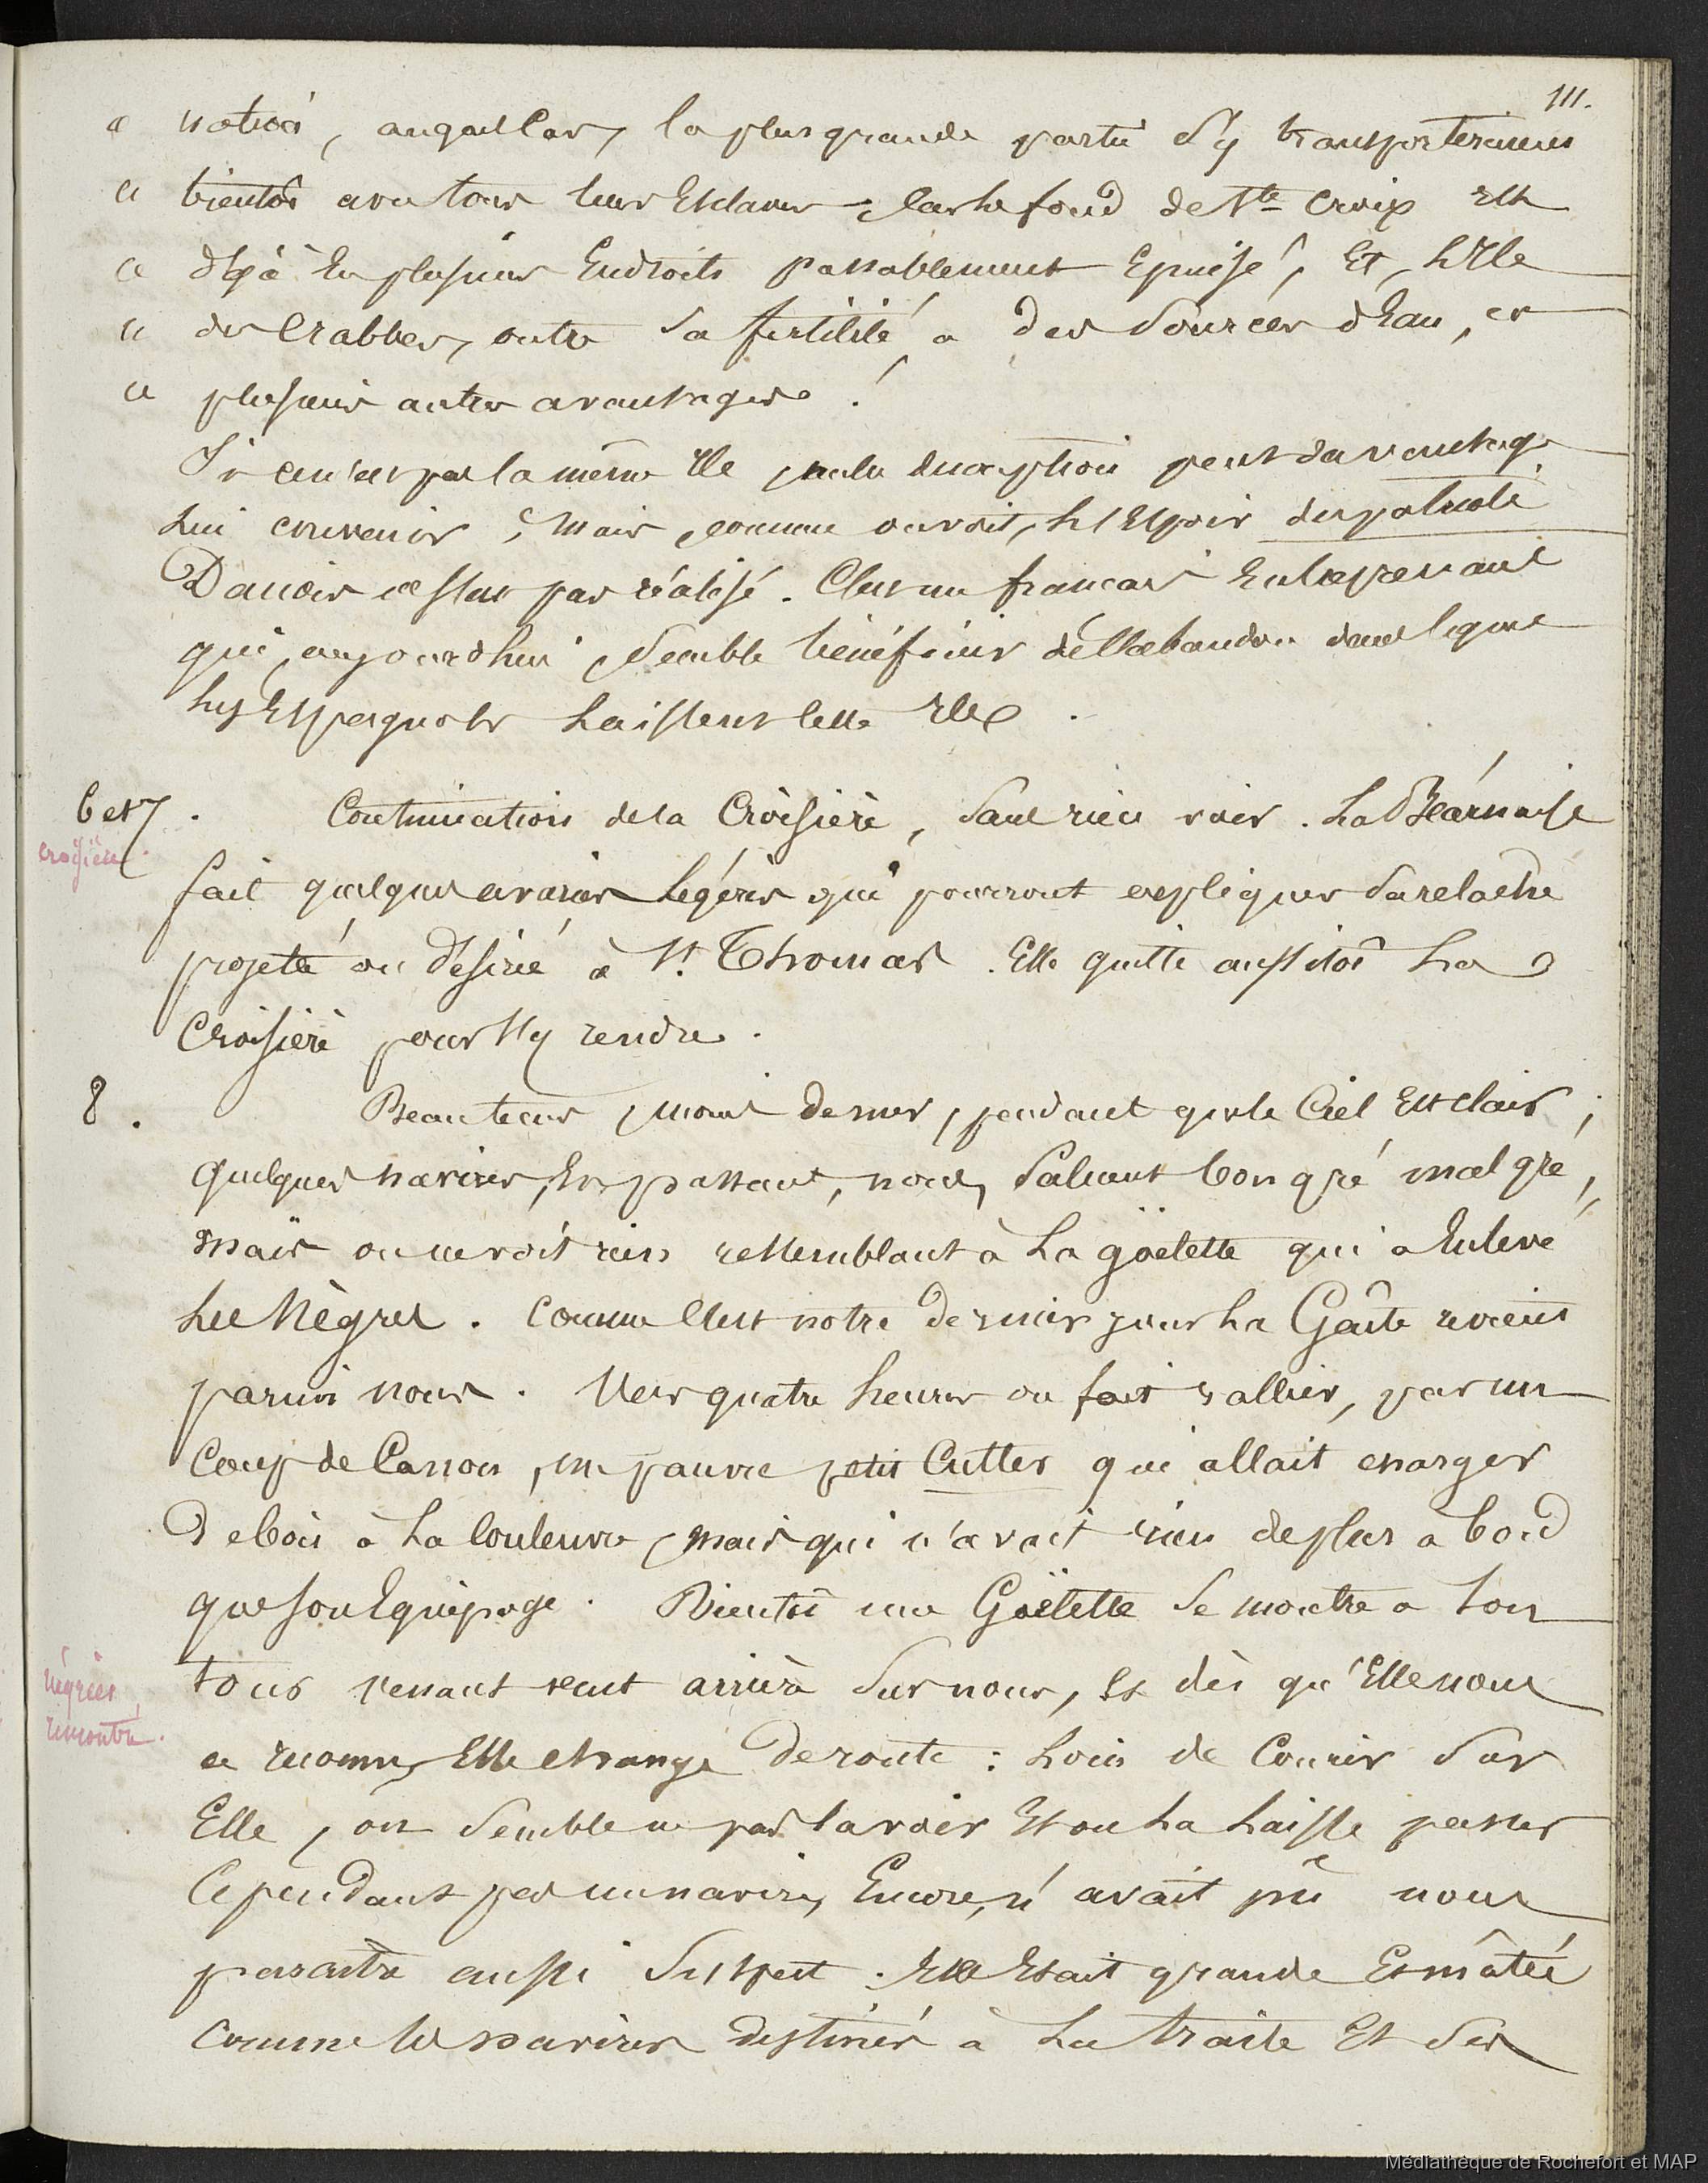 111.
« nation, auquel cas, la plus grande partie s'y transporteraient
« bientôt avec tous leurs Esclaves ; car le fond de Ste Croix Est
« déjà En plusieurs Endroits passablement Epuisé, Et, L'Ile
« des Crabbes, outre sa fertilité, a des sources d'Eau, et
« plusieurs autres avantages !
Si ce n'est pas la même Ile, que la description peut davantage
lui convenir, mais, comme on voit, L'Espoir du patriote
Danois ne s'est pas réalisé. C'est un francais Entreprenant
qui, aujourdhui, semble bénéficier de l'abandon dans lequel
les Espagnols Laissent cette Ile.
6 et 7. Continuation de la Croisière, sans rien voir. La Béarnaise
croisière.
fait quelques avaries Légères qui pourront expliquer sa relache
projeté ou désiré à St. Thomas. Elle quitte aussitôt La
Croisière pour s'y rendre.
8. Beau temps, moins de mer, pendant que le Ciel Est clair ;
quelques navires, En passant, nous saluent bon gré mal gré,
mais on ne voit rien ressemblant à La goëlette qui a Enlevé
Les Nègres. Comme C'est notre dernier jour La Gazelle revient
parmi nous. Vers quatre heures on fait rallier, par un
Coup de Canon, un pauvre petit Cutter qui allait charger
De bois à La Couleuvre, mais qui n'avait rien de plus à bord
que son Equipage. Bientôt une Goëlette se montre à son
négrier
rencontré.
tour venant vent arrière sur nous, Et dès qu'Elle nous
a reconnu, Elle change de route : Loin de Courir sur
Elle, on semble ne pas la voir Et on La Laisse passer
Cependant pas un navire, Encore, n'avait pû nous
paraitre aussi suspect. Elle Etait grande Et mâtée
comme les navires destinés à La traite Et ses
Médiathèque de Rochefort et MAP